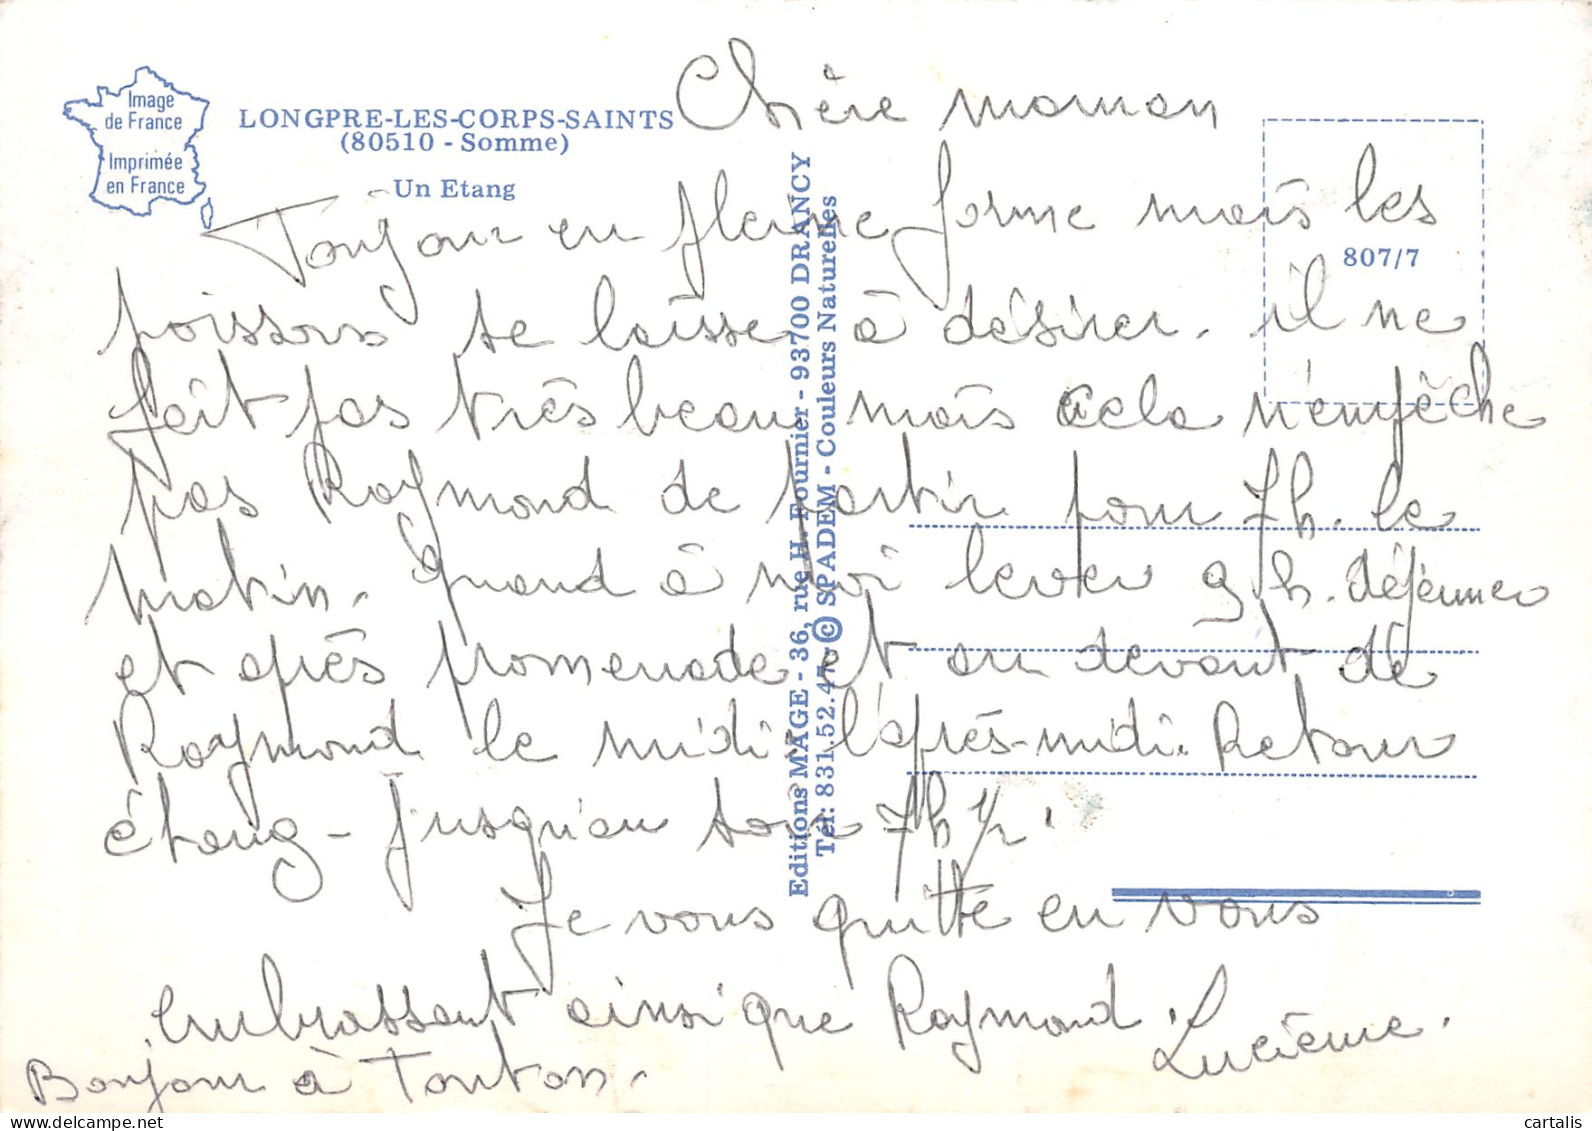 Image
de France
Imprimée
en France
LONGPRE-LES-CORPS-SAINTS
(80510 - Somme)
Un Etang
807/7
Editions MAGE - 36, rue H. Fournier - 93700 DRANCY
Tél: 831.52.47. © SPADEM - Couleurs Naturelles
Chère maman
Toujour en pleine forme mais les
poissons se laisse à désirer. il ne
fait pas très beau mais cela n'empêche
pas Raymond de partir pour 7h. le
matin. Quand à moi lever 9 h. déjeuner
et après promenade et au devant de
Raymond le midi l'après-midi. Retour
étang - jusqu'au soir 7h 1/2.
Je vous quitte en vous
embrassant ainsi que Raymond.
Lucienne.
Bonjour à Tonton.
cartalis